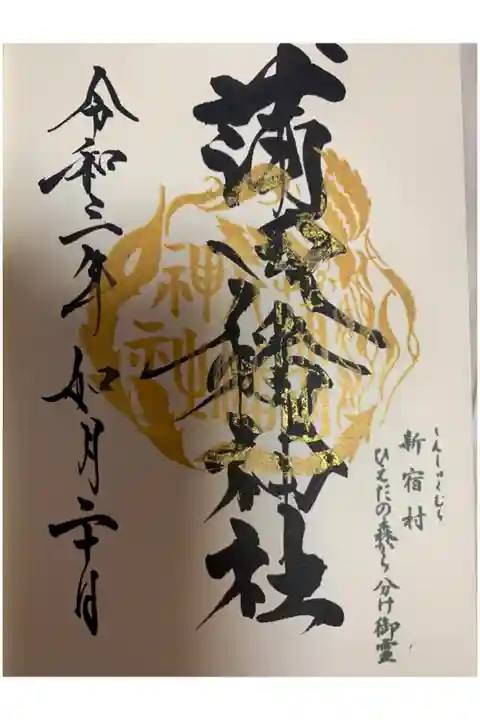 しんしゅくむら
新宿村
ひえだの森から分け御霊
蒲田八幡神社
令和三年 如月二十日
神社